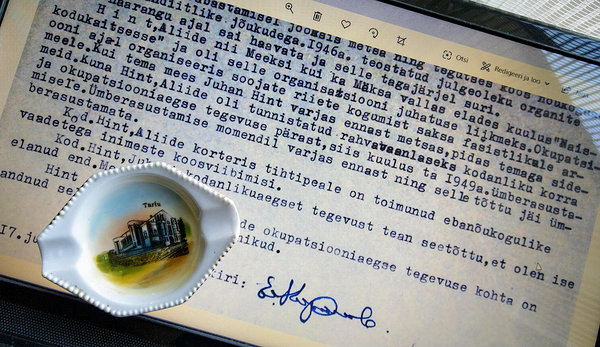 Otsi
Redigeeri ja loo
abastamisel jooksis metsa ning tegutses koos nõuko
nditlike jõukudega.1946a. teostatud julgeoleku organite
haarangu ajal sai haavata ja selle tagajärjel suri.
Hint,Aliide nii Meeksi kui ka Mäksa vallas elades kuulus "Nais-
kodukaitsesse" ja oli selle organisatsiooni juhatuse liikmeks.Okupatsi
ooni ajal organiseeris soojate riiete kogumist saksa fašistlikule ar-
meele.Kui tema mees Juhan Hint varjas ennast metsas,pidas temaga side-
meid.kuna Hint,Aliide oli tunnistatud rahvavaenlaseks kodanliku korra
ja okupatsiooniaegse tegevuse pärast,siis kuulus ta 1949a.ümberasusta-
misele.Ümberasustamise momendil varjas ennast ning selle tõttu jäi üm-
berasustamata.
Kod.Hint,Aliide korteris tihtipeale on toimunud ebanõukogulike
vaadetega inimeste koosviibimisi.
Kod.Hint,Juhan kodanlikuaegset tegevust tean seetõttu,et olen ise
elanud end.M
Hint de okupatsiooniaegse tegevuse kohta on
andnud se nikud.
17.ju
iri:
Tartu